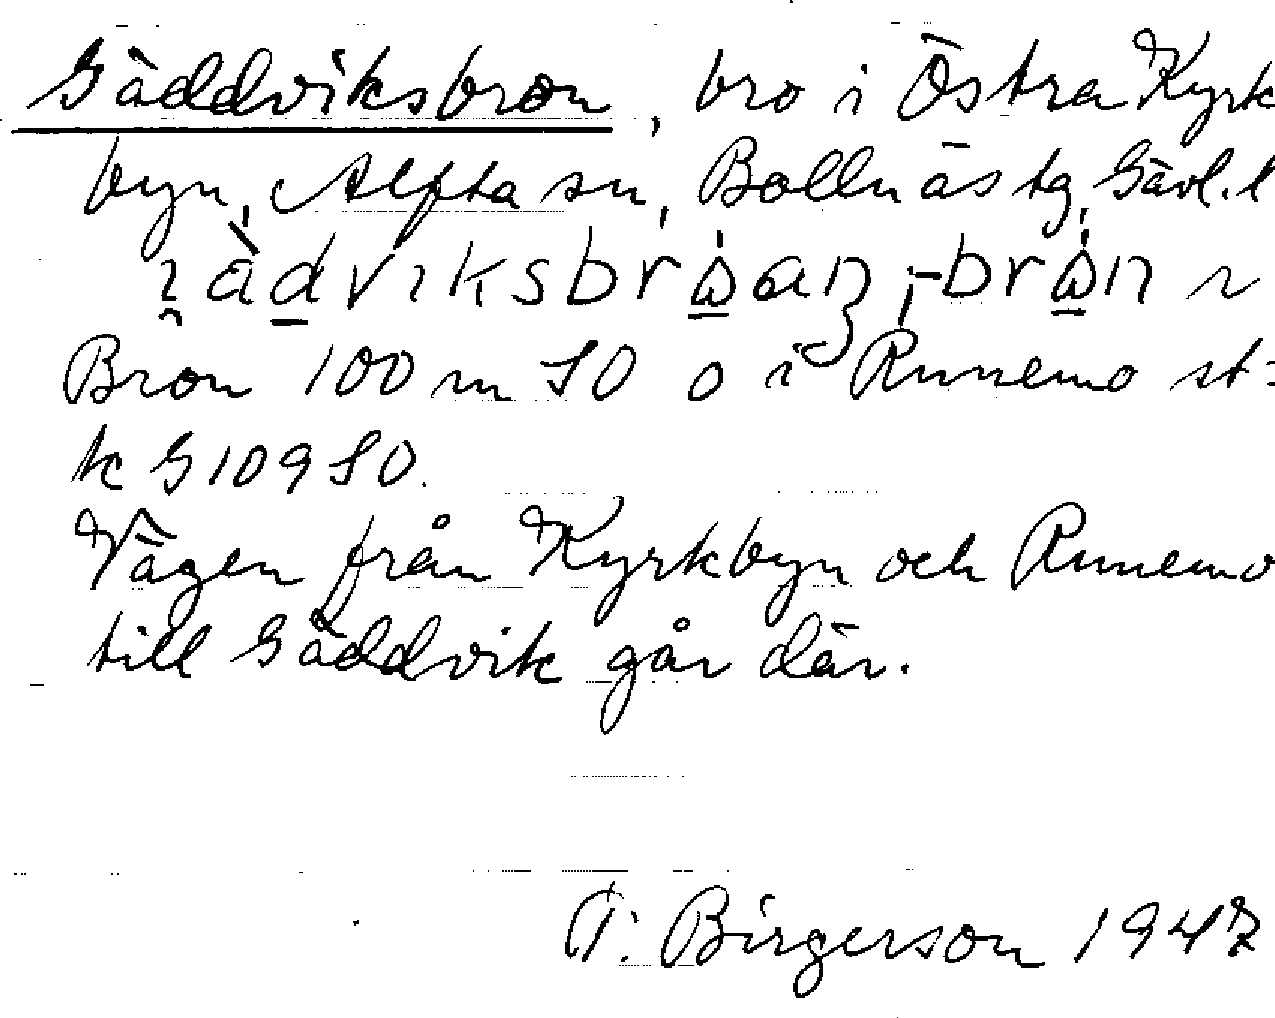 Gäddviksbron, bro i Östra Kyrk
byn, Alfta sn, Bollnäs tg, Gävl. l
Bron 100 m SO o i Runemo st:
k G109SO.
Vägen från Kyrkbyn och Runemo
till Gäddvik går där.
T. Birgerson 1947